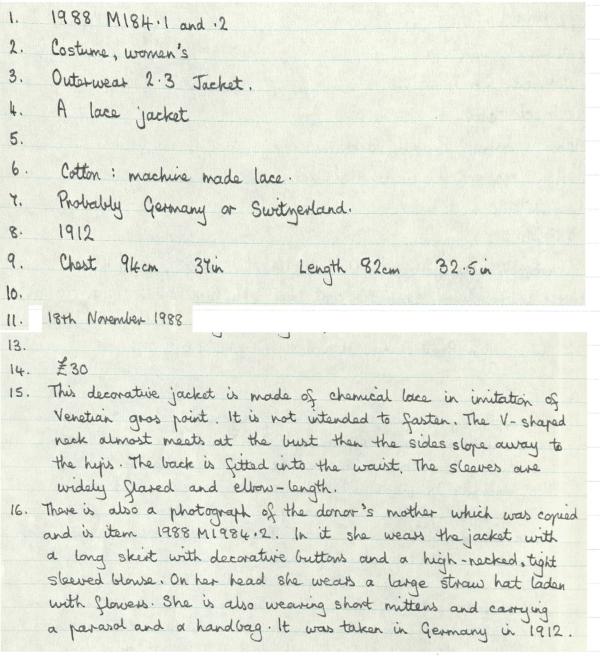 1. 1988 M184.1 and .2
2. Costume, women's
3. Outerwear 2.3 Jacket.
4. A lace jacket
5.
6. Cotton: machine made lace.
7. Probably Germany or Switzerland.
8. 1912
9. Chest 94cm 37in Length 82cm 32.5in
10.
11. 18th November 1988
13.
14. £30
15. This decorative jacket is made of chemical lace in imitation of
Venetian gros point. It is not intended to fasten. The V-shaped
neck almost meets at the bust then the sides slope away to
the hips. The back is fitted into the waist. The sleeves are
widely flared and elbow-length.
16. There is also a photograph of the donor's mother which was copied
and is item 1988 M1984.2. In it she wears the jacket with
a long skirt with decorative buttons and a high-necked, tight
sleeved blouse. On her head she wears a large straw hat laden
with flowers. She is also wearing short mittens and carrying
a parasol and a handbag. It was taken in Germany in 1912.